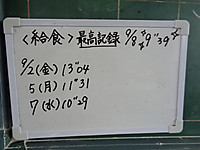 〈給食〉最高記録 9/8 9"39
9/2(金) 13"04
5(月) 11"31
7(水) 10"29